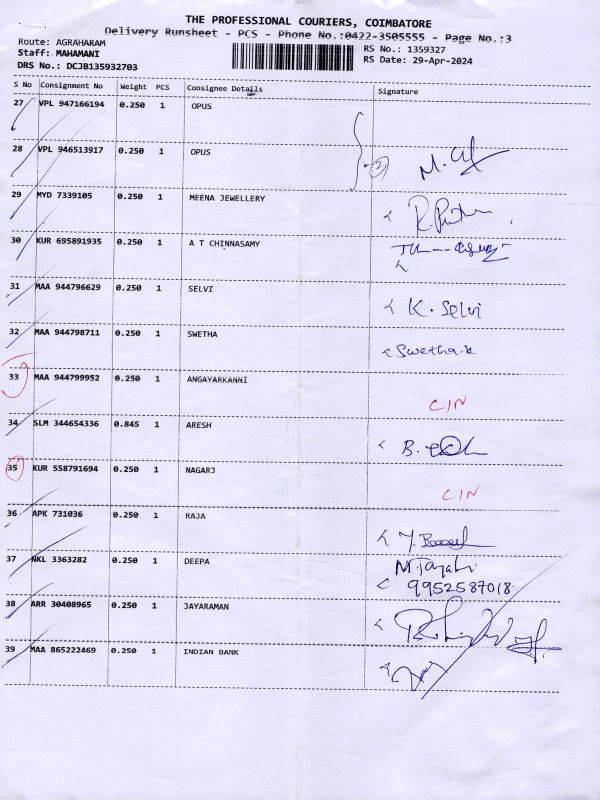 THE PROFESSIONAL COURIERS, COIMBATORE
Delivery Runsheet - PCS - Phone No.:0422-3505555 - Page No.:3
Route: AGRAHARAM
RS No.: 1359327
Staff: MAHAMANI
RS Date: 29-Apr-2024
DRS No.: DCJB135932703
S No Consignment No Weight PCS Consignee Details Signature
27 VPL 947166194 0.250 1 OPUS
28 VPL 946513917 0.250 1 OPUS
29 MYD 7339105 0.250 1 MEENA JEWELLERY
30 KUR 695891935 0.250 1 A T CHINNASAMY
31 MAA 944796629 0.250 1 SELVI K. Selvi
32 MAA 944798711 0.250 1 SWETHA Swetha.k
33 MAA 944799952 0.250 1 ANGAYARKANNI C/N
34 SLM 344654336 0.845 1 ARESH
35 KUR 558791694 0.250 1 NAGARJ C/N
36 APK 731036 0.250 1 RAJA
37 NKL 3363282 0.250 1 DEEPA
9952587018
38 ARR 30408965 0.250 1 JAYARAMAN
39 MAA 865222469 0.250 1 INDIAN BANK